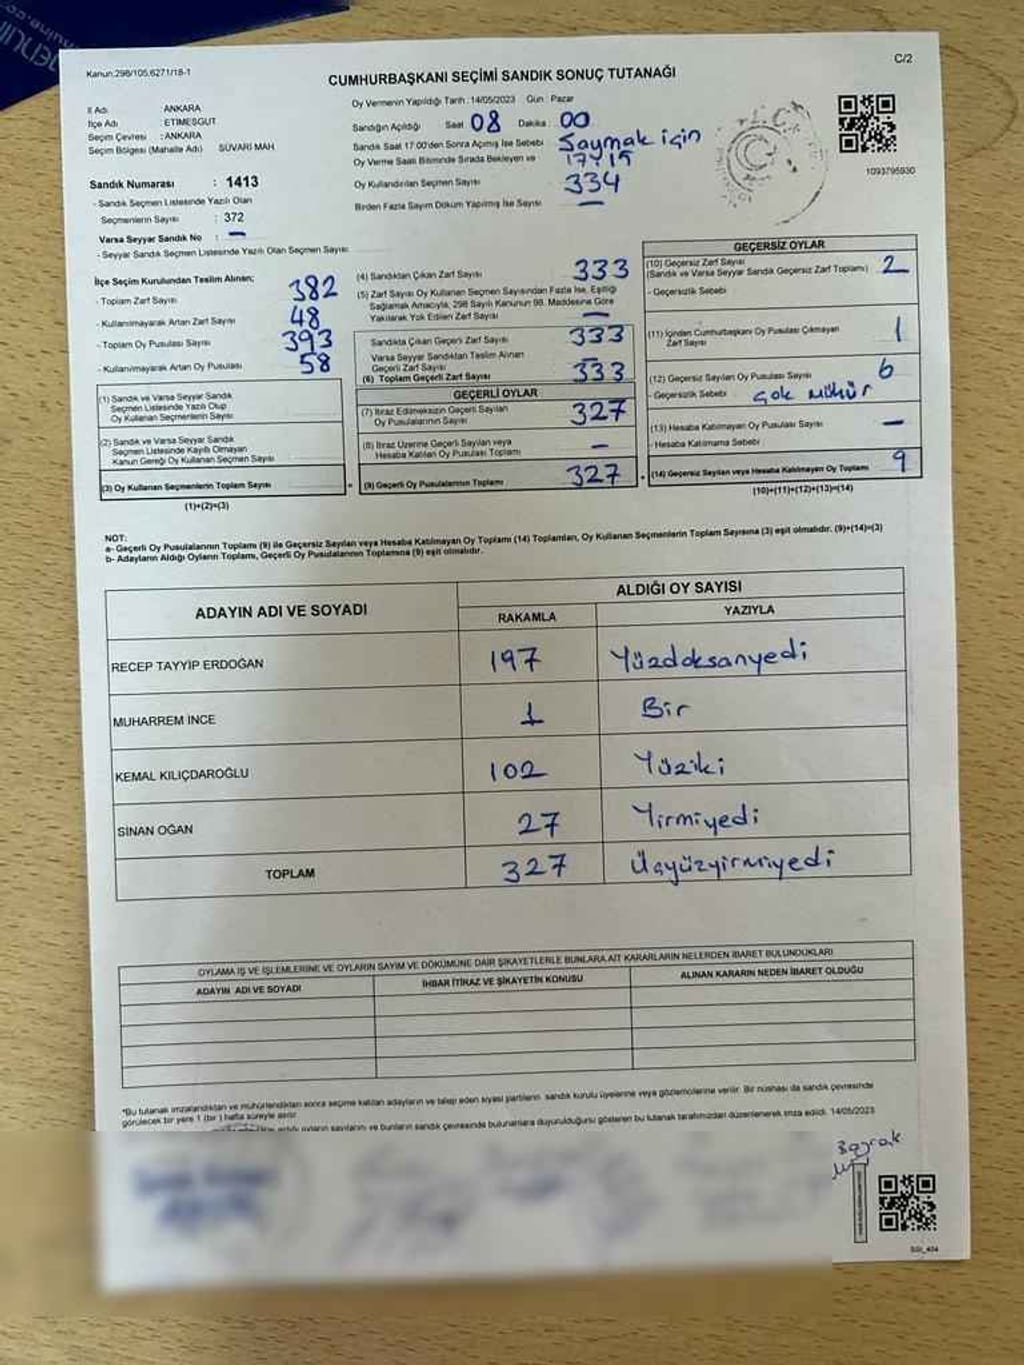 Kanun:298/105,6271/18-1
C/2
CUMHURBAŞKANI SEÇİMİ SANDIK SONUÇ TUTANAĞI
İl Adı ANKARA
İlçe Adı ETİMESGUT
Seçim Çevresi : ANKARA
Seçim Bölgesi (Mahalle Adı) SÜVARİ MAH.
Oy Vermenin Yapıldığı Tarih : 14/05/2023 Gün : Pazar
Sandığın Açıldığı Saat 08 Dakika : 00
Sandık Saat 17:00'den Sonra Açılmış İse Sebebi Saymak için
Oy Verme Saati Bitiminde Sırada Bekleyen ve 17:15
Oy Kullandırılan Seçmen Sayısı 334
Birden Fazla Sayım Döküm Yapılmış İse Sayısı —
1093795930
Sandık Numarası : 1413
- Sandık Seçmen Listesinde Yazılı Olan
Seçmenlerin Sayısı : 372
Varsa Seyyar Sandık No : —
- Seyyar Sandık Seçmen Listesinde Yazılı Olan Seçmen Sayısı:
İlçe Seçim Kurulundan Teslim Alınan;
- Toplam Zarf Sayısı 382
- Kullanılmayarak Artan Zarf Sayısı 48
- Toplam Oy Pusulası Sayısı 393
- Kullanılmayarak Artan Oy Pusulası 58
(1) Sandık ve Varsa Seyyar Sandık
Seçmen Listesinde Yazılı Olup
Oy Kullanan Seçmenlerin Sayısı
(2) Sandık ve Varsa Seyyar Sandık
Seçmen Listesinde Kayıtlı Olmayan
Kanun Gereği Oy Kullanan Seçmen Sayısı
(3) Oy Kullanan Seçmenlerin Toplam Sayısı
(1)+(2)=(3)
(4) Sandıktan Çıkan Zarf Sayısı 333
(5) Zarf Sayısı Oy Kullanan Seçmen Sayısından Fazla İse, Eşitliği
Sağlamak Amacıyla, 298 Sayılı Kanunun 98. Maddesine Göre
Yakılarak Yok Edilen Zarf Sayısı —
Sandıkta Çıkan Geçerli Zarf Sayısı 333
Varsa Seyyar Sandıktan Teslim Alınan
Geçerli Zarf Sayısı —
(6) Toplam Geçerli Zarf Sayısı 333
GEÇERLİ OYLAR
(7) İtiraz Edilmeksizin Geçerli Sayılan
Oy Pusulalarının Sayısı 327
(8) İtiraz Üzerine Geçerli Sayılan veya
Hesaba Katılan Oy Pusulası Toplamı —
= (9) Geçerli Oy Pusulalarının Toplamı 327 +
GEÇERSİZ OYLAR
(10) Geçersiz Zarf Sayısı 2
(Sandık ve Varsa Seyyar Sandık Geçersiz Zarf Toplamı)
- Geçersizlik Sebebi
(11) İçinden Cumhurbaşkanı Oy Pusulası Çıkmayan
Zarf Sayısı 1
(12) Geçersiz Sayılan Oy Pusulası Sayısı 6
- Geçersizlik Sebebi Çok Mühür
(13) Hesaba Katılmayan Oy Pusulası Sayısı —
- Hesaba Katılmama Sebebi
(14) Geçersiz Sayılan veya Hesaba Katılmayan Oy Toplamı 9
(10)+(11)+(12)+(13)=(14)
NOT:
a- Geçerli Oy Pusulalarının Toplamı (9) ile Geçersiz Sayılan veya Hesaba Katılmayan Oy Toplamı (14) Toplamları, Oy Kullanan Seçmenlerin Toplam Sayısına (3) eşit olmalıdır. (9)+(14)=(3)
b- Adayların Aldığı Oyların Toplamı, Geçerli Oy Pusulalarının Toplamına (9) eşit olmalıdır.
ADAYIN ADI VE SOYADI
ALDIĞI OY SAYISI
RAKAMLA YAZIYLA
RECEP TAYYİP ERDOĞAN 197 Yüzdoksanyedi
MUHARREM İNCE 1 Bir
KEMAL KILIÇDAROĞLU 102 Yüziki
SİNAN OĞAN 27 Yirmiyedi
TOPLAM 327 Üçyüzyirmiyedi
OYLAMA İŞ VE İŞLEMLERİNE VE OYLARIN SAYIM VE DÖKÜMÜNE DAİR ŞİKAYETLERLE BUNLARA AİT KARARLARIN NELERDEN İBARET BULUNDUKLARI
ADAYIN ADI VE SOYADI İHBAR İTİRAZ VE ŞİKAYETİN KONUSU ALINAN KARARIN NEDEN İBARET OLDUĞU
*Bu tutanak imzalandıktan ve mühürlendikten sonra seçime katılan adayların ve talep eden siyasi partilerin sandık kurulu üyelerine veya gözlemcilerine verilir. Bir nüshası da sandık çevresinde
görülecek bir yere 1 (bir) hafta süreyle asılır.
oyların sayılarını ve bunların sandık çevresinde bulunanlara duyurulduğunu gösteren bu tutanak tarafımızdan düzenlenerek imza edildi. 14/05/2023
Bayrak